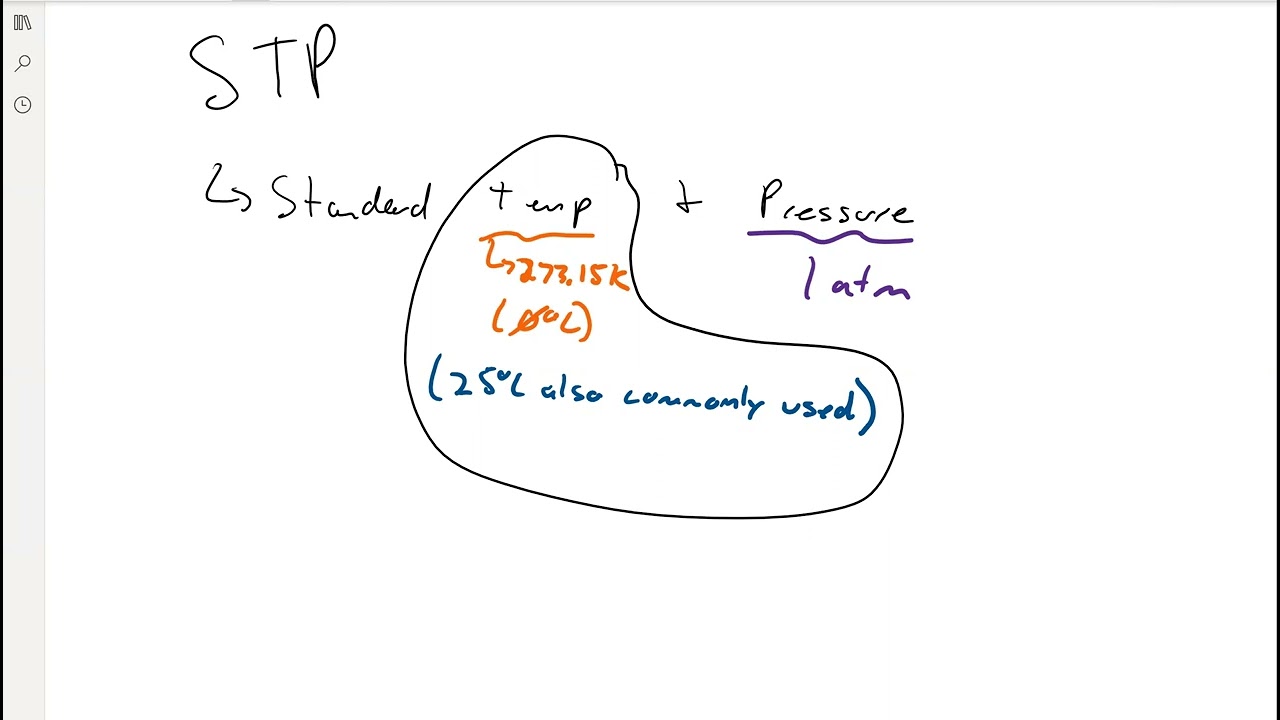 STP
↳ Standard temp + Pressure
↳273.15K
1 atm
(0°C)
(25°C also commonly used)